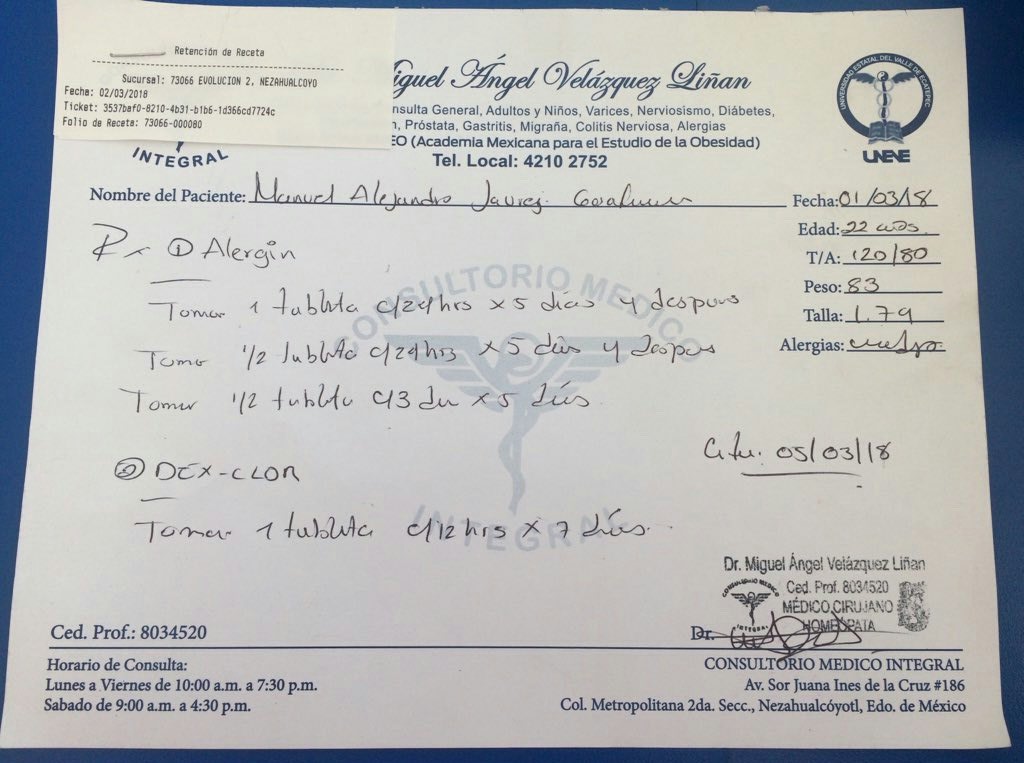 Retención de Receta
Sucursal: 73066 EVOLUCION 2, NEZAHUALCOYO
Fecha: 02/03/2018
Ticket: 3537baf0-8210-4b31-b1b6-1d366cd7724c
Folio de Receta: 73066-000080
iguel Ángel Velázquez Liñan
nsulta General, Adultos y Niños, Varices, Nerviosismo, Diábetes,
n, Próstata, Gastritis, Migraña, Colitis Nerviosa, Alergias
EO (Academia Mexicana para el Estudio de la Obesidad)
Tel. Local: 4210 2752
INTEGRAL
UNIVERSIDAD ESTATAL DEL VALLE DE ECATEPEC
UNEVE
Nombre del Paciente: Manuel Alejandro
Fecha: 01/03/18
Edad: 22 años.
T/A: 120/80
Peso: 83
Talla: 1.79
Alergias:
Rx ① Alergin
Tomar 1 tableta c/24hrs x 5 días y despues
Tomar 1/2 tableta c/24hrs x 5 días y despues
Tomar 1/2 tableta c/3 x 5 días
CONSULTORIO MEDICO
INTEGRAL
Cita: 05/03/18
② DEX-CLOR
Tomar 1 tableta c/12hrs x 7 días.
Dr. Miguel Ángel Velázquez Liñan
Ced. Prof. 8034520
MÉDICO CIRUJANO
HOMEOPATA
CONSULTORIO MEDICO
INTEGRAL
Ced. Prof.: 8034520
Dr.
Horario de Consulta:
Lunes a Viernes de 10:00 a.m. a 7:30 p.m.
Sabado de 9:00 a.m. a 4:30 p.m.
CONSULTORIO MEDICO INTEGRAL
Av. Sor Juana Ines de la Cruz #186
Col. Metropolitana 2da. Secc., Nezahualcóyotl, Edo. de México